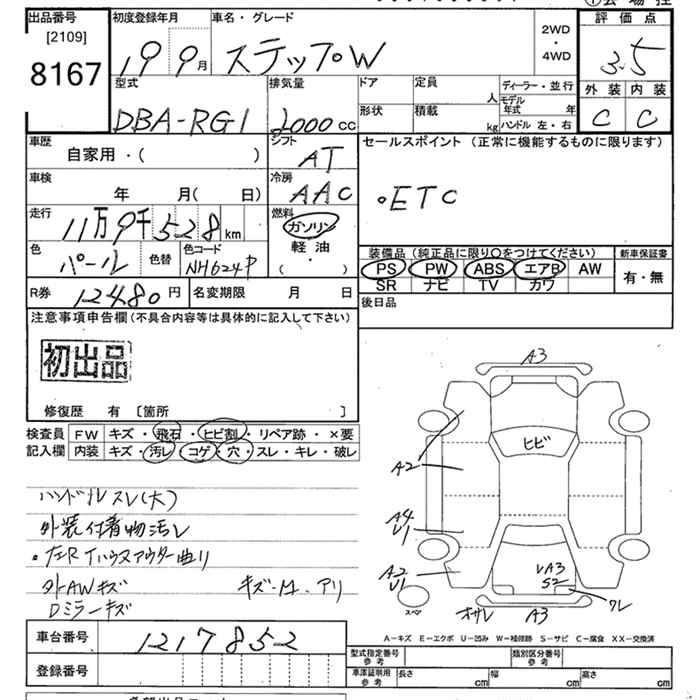 出品番号 初度登録年月 車名・グレード 評価点
[2109] 2WD
8167 19 9月 ステップW ・ 3.5
4WD
型式 排気量 ドア 定員 ディーラー・並行 外装 内装
人 モデル年式 年
DBA-RG1 2000cc 形状 積載 kg ハンドル 左・右 C C
車歴 シフト セールスポイント (正常に機能するものに限ります)
自家用・( ) AT
車検 冷房
年 月( 日) AAC ・ETC
走行 燃料
11万9千528km ガソリン
色 色替 色コード 軽油 装備品 (純正品に限り○をつけてください) 新車保証書
パール NH624P ・( ) PS PW ABS エアB AW 有・無
SR ナビ TV カワ
R券 12480円 名変期限 月 日 後日品
注意事項申告欄 (不具合内容等は具体的に記入して下さい)
初出品 A3
修復歴 有 〔箇所 〕
検査員 FW キズ・飛石・ヒビ割・リペア跡・×要 ヒビ
記入欄 内装 キズ・汚レ・コゲ・穴・スレ・キレ・破レ A2
ハンドルスレ(大)
外装付着物汚レ A4
U1
・左Rドハウスアウター曲り
外AWキズ キズ-M.アリ A2
U1
UA3
S2
Dミラーキズ スペア オサレ A3 ワレ
A-キズ E-エクボ U-凹み W-補修跡 S-サビ C-腐食 XX-交換済
車台番号 1217852
型式指定番号 参考 類別区分番号 参考
登録番号 車庫証明用 参考 長さ cm 幅 cm 高さ cm